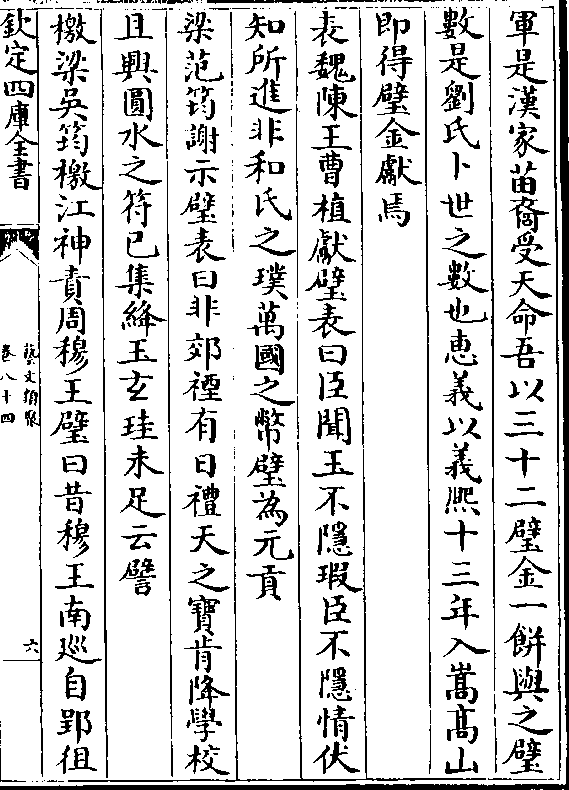 軍是漢家苗裔受天命吾以三十二璧金一餅與之璧
數是劉氏卜世之數也惠義以義熙十三年入嵩髙山
即得璧金獻焉
表魏陳王曹植獻璧表曰臣聞玉不隱瑕臣不隱情伏
知所進非和氏之璞萬國之幣璧為元貢
梁范筠謝示璧表曰非郊禋有日禮天之寶肯降學校
且興圓水之符已集絳玉玄珪未足云譬
檄梁吳筠檄江神責周穆王璧曰昔穆王南廵自郢徂
欽定四庫全書
藝文類聚
卷八十四
六